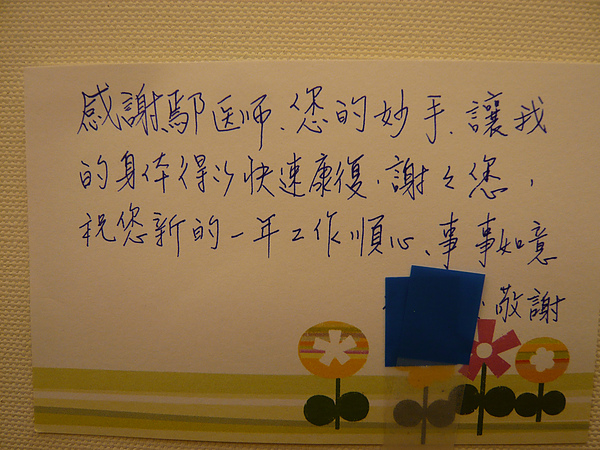 感謝鄢医师、您的妙手、讓我
的身体得以快速康復、謝々您，
祝您新的一年工作順心、事事如意
敬謝